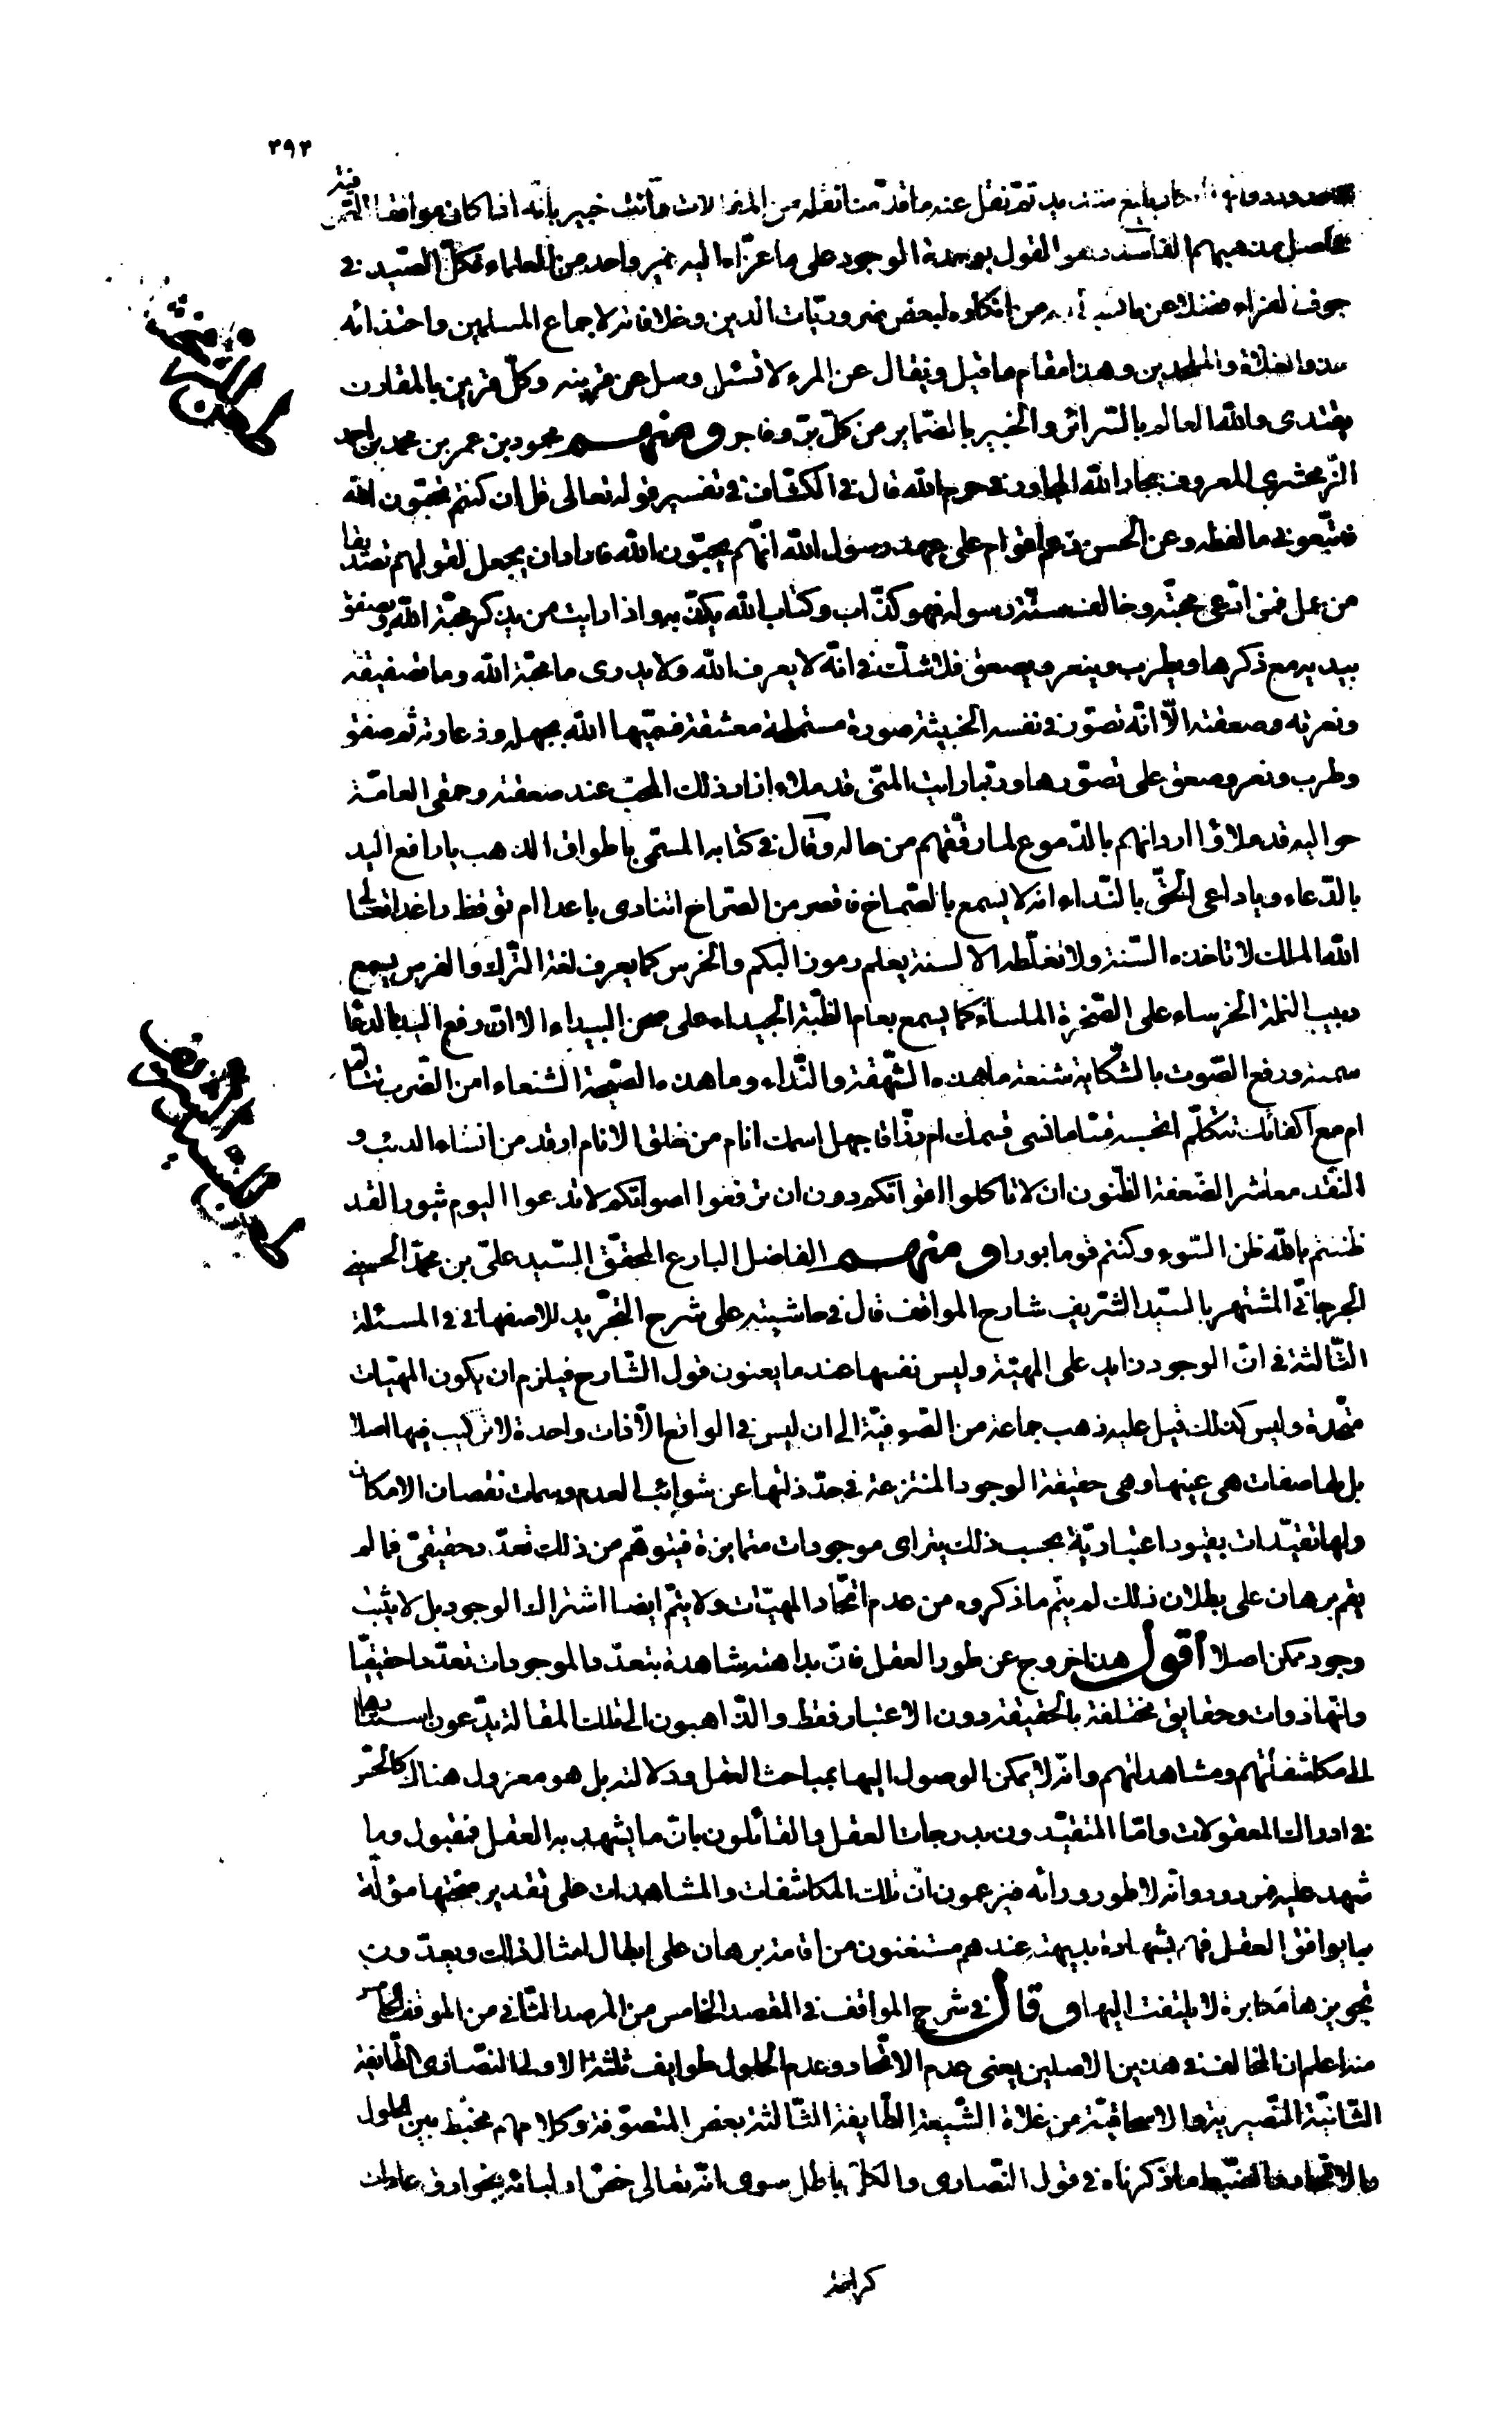 ٢٩٢
نقل عنه ما قدمنا نقله من المقالات فأنت خبير بأنه اذا كان موافقا القوم فى
حاصل مذهبهم الفاسد وهو القول بوحدة الوجود على ما عزاه اليه غير واحد من العلماء فكل الصيد فى
جوف الفراء فضلا عن ما من انكاره لبعض ضروريات الدين وخلافاته لاجماع المسلمين واخذ انه
والغلاة والملحدين وهذا مقام ما قيل ويقال عن المرء لا تسئل وسل عن قرينه وكل قرين بالمقارن
يقتدى والله العالم بالسرائر والخبير بالضماير من كل بر وفاجر ومنهم محمود بن عمر بن محمد بن احمد
الزمخشرى المعروف بجار الله المجاور فى حرم الله قال فى الكشاف فى تفسير قوله تعالى قل ان كنتم تحبون الله
فاتبعونى ما لفظه وعن الحسن زعم اقوام على عهد رسول الله انهم يحبون الله فاراد ان يجعل لقولهم تصديقا
من عمل فمن ادعى محبته وخالف سنة رسوله فهو كذاب وكتاب الله يكذبه واذا رايت من يذكر محبة الله ويصفق
بيديه مع ذكرها ويطرب وينعر ويصعق فلا شك فى انه لا يعرف الله ولا يدرى ما محبة الله وما تصفيقه
ونعرته وصعقته الا انه تصور فى نفسه الخبيثة صورة مستملحة معشقة فسميها الله بجهله وذعارته ثم صفق
وطرب ونعر وصعق على تصورها وربما رايت المنى قد ملاء ازار ذلك المحب عند صعقته وحمقى العامة
حواليه قد ملاؤا اردانهم بالدموع لما رققهم من حاله وقال فى كتابه المسمى باطواق الذهب يا رافع اليد
بالدعاء ويا داعى الحق بالنداء انه لا يسمع بالصماخ فاقصر من الصراخ اتنادى باعدا ام توقظ راغدا تعالى
الله الملك لا تاخذه السنة ولا تغلطه الالسنة يعلم رموز البكم والخرس كما يعرف لغة الترك والفرس يسمع
دبيب النملة الخرساء على الصخرة الملساء كما يسمع بغام الظبية الجيداء على صحن البيداء الا ان رفع اليد بالدعا
سمة ورفع الصوت بالشكاية شنعة ما هذه الشهقة والنداء وما هذه الصيحة الشنعاء امن الضرب تتالم
ام مع اكفائك تتكلم اتحسبه قساما نسى قسمك ام رزاقا جهل اسمك انام من خلق الانام اوقد من انشاء الديك و
النقد معاشر الضعفة الظنون ان لا تاكلوا اقواتكم دون ان ترفعوا اصواتكم لا تدعوا اليوم ثبورا لقد
ظننتم بالله ظن السوء وكنتم قوما بورا ومنهم الفاضل البارع المحقق السيد على بن محمد الحسينى
الجرجانى المشتهر بالسيد الشريف شارح المواقف قال فى حاشيته على شرح التجريد للاصفهانى فى المسئلة
الثالثة فى ان الوجود زايد على المهية وليس نفسها عند ما يعنون قول الشارح فيلزم ان يكون المهيات
متحدة وليس كذلك قيل عليه ذهب جماعة من الصوفية الى ان ليس فى الواقع الا ذات واحدة لا تركيب فيها اصلا
بل لها صفات هى عينها وهى حقيقة الوجود المنتزعة فى حد ذاتها عن شوائب العدم وسمات نقصان الامكان
ولها تقيدات بقيود اعتبارية بحسب ذلك يترائى موجودات متمايزة فيتوهم من ذلك تعدد حقيقى فما لم
يقم برهان على بطلان ذلك لم يتم ما ذكروه من عدم اتحاد المهيات ولا يتم ايضا اشتراك الوجود بل لا يثبت
وجود ممكن اصلا اقول هذا خروج عن طور العقل فان بداهته شاهدة بتعدد الموجودات تعددا حقيقيا
وانها ذوات وحقايق مختلفة بالحقيقة دون الاعتبار فقط والذاهبون الى تلك المقالة يدعون استنادها
الى مكاشفاتهم ومشاهداتهم وانه لا يمكن الوصول اليها بمباحث العقل ودلالته بل هو معزول هناك كالحس
فى ادراك المعقولات واما المتقيدون بدرجات العقل والقائلون بان ما يشهد به العقل فمقبول وما
شهد عليه فمردود وانه لا طور ورائه فيزعمون ان تلك المكاشفات والمشاهدات على تقدير صحتها مؤلة
بما يوافق العقل فهم بشهادة بديهته عندهم مستغنون من اقامة برهان على ابطال امثال ذلك ويعدون
تجويزها مكابرة لا يلتفت اليها وقال فى شرح المواقف فى المقصد الخامس من المرصد الثانى من الموقف الخامس
منه اعلم ان المخالف فى هذين الاصلين يعنى عدم الاتحاد وعدم الحلول طوايف ثلثة الاولى النصارى الطايفة
الثانية النصيرية والاسحاقية من غلاة الشيعة الطايفة الثالثة بعض المتصوفة وكلامهم مخبط بين الحلول
والاتحاد والضبط ما ذكرناه فى قول النصارى والكل باطل سوى انه تعالى خص اوليائه بخوارق عادات
كرامة